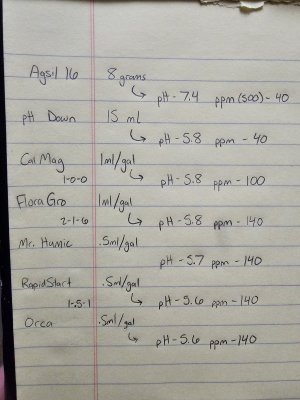 Agsil 16 8 grams
pH - 7.4 ppm (500) - 40
pH Down 15 mL
pH - 5.8 ppm - 40
Cal Mag 1ml/gal
1-0-0 pH - 5.8 ppm - 100
FloraGro 1ml/gal
2-1-6 pH - 5.8 ppm - 140
Mr. Humic .5ml/gal
pH - 5.7 ppm - 140
RapidStart .5ml/gal
1-.5-1 pH - 5.6 ppm - 140
Orca .5ml/gal
pH - 5.6 ppm - 140